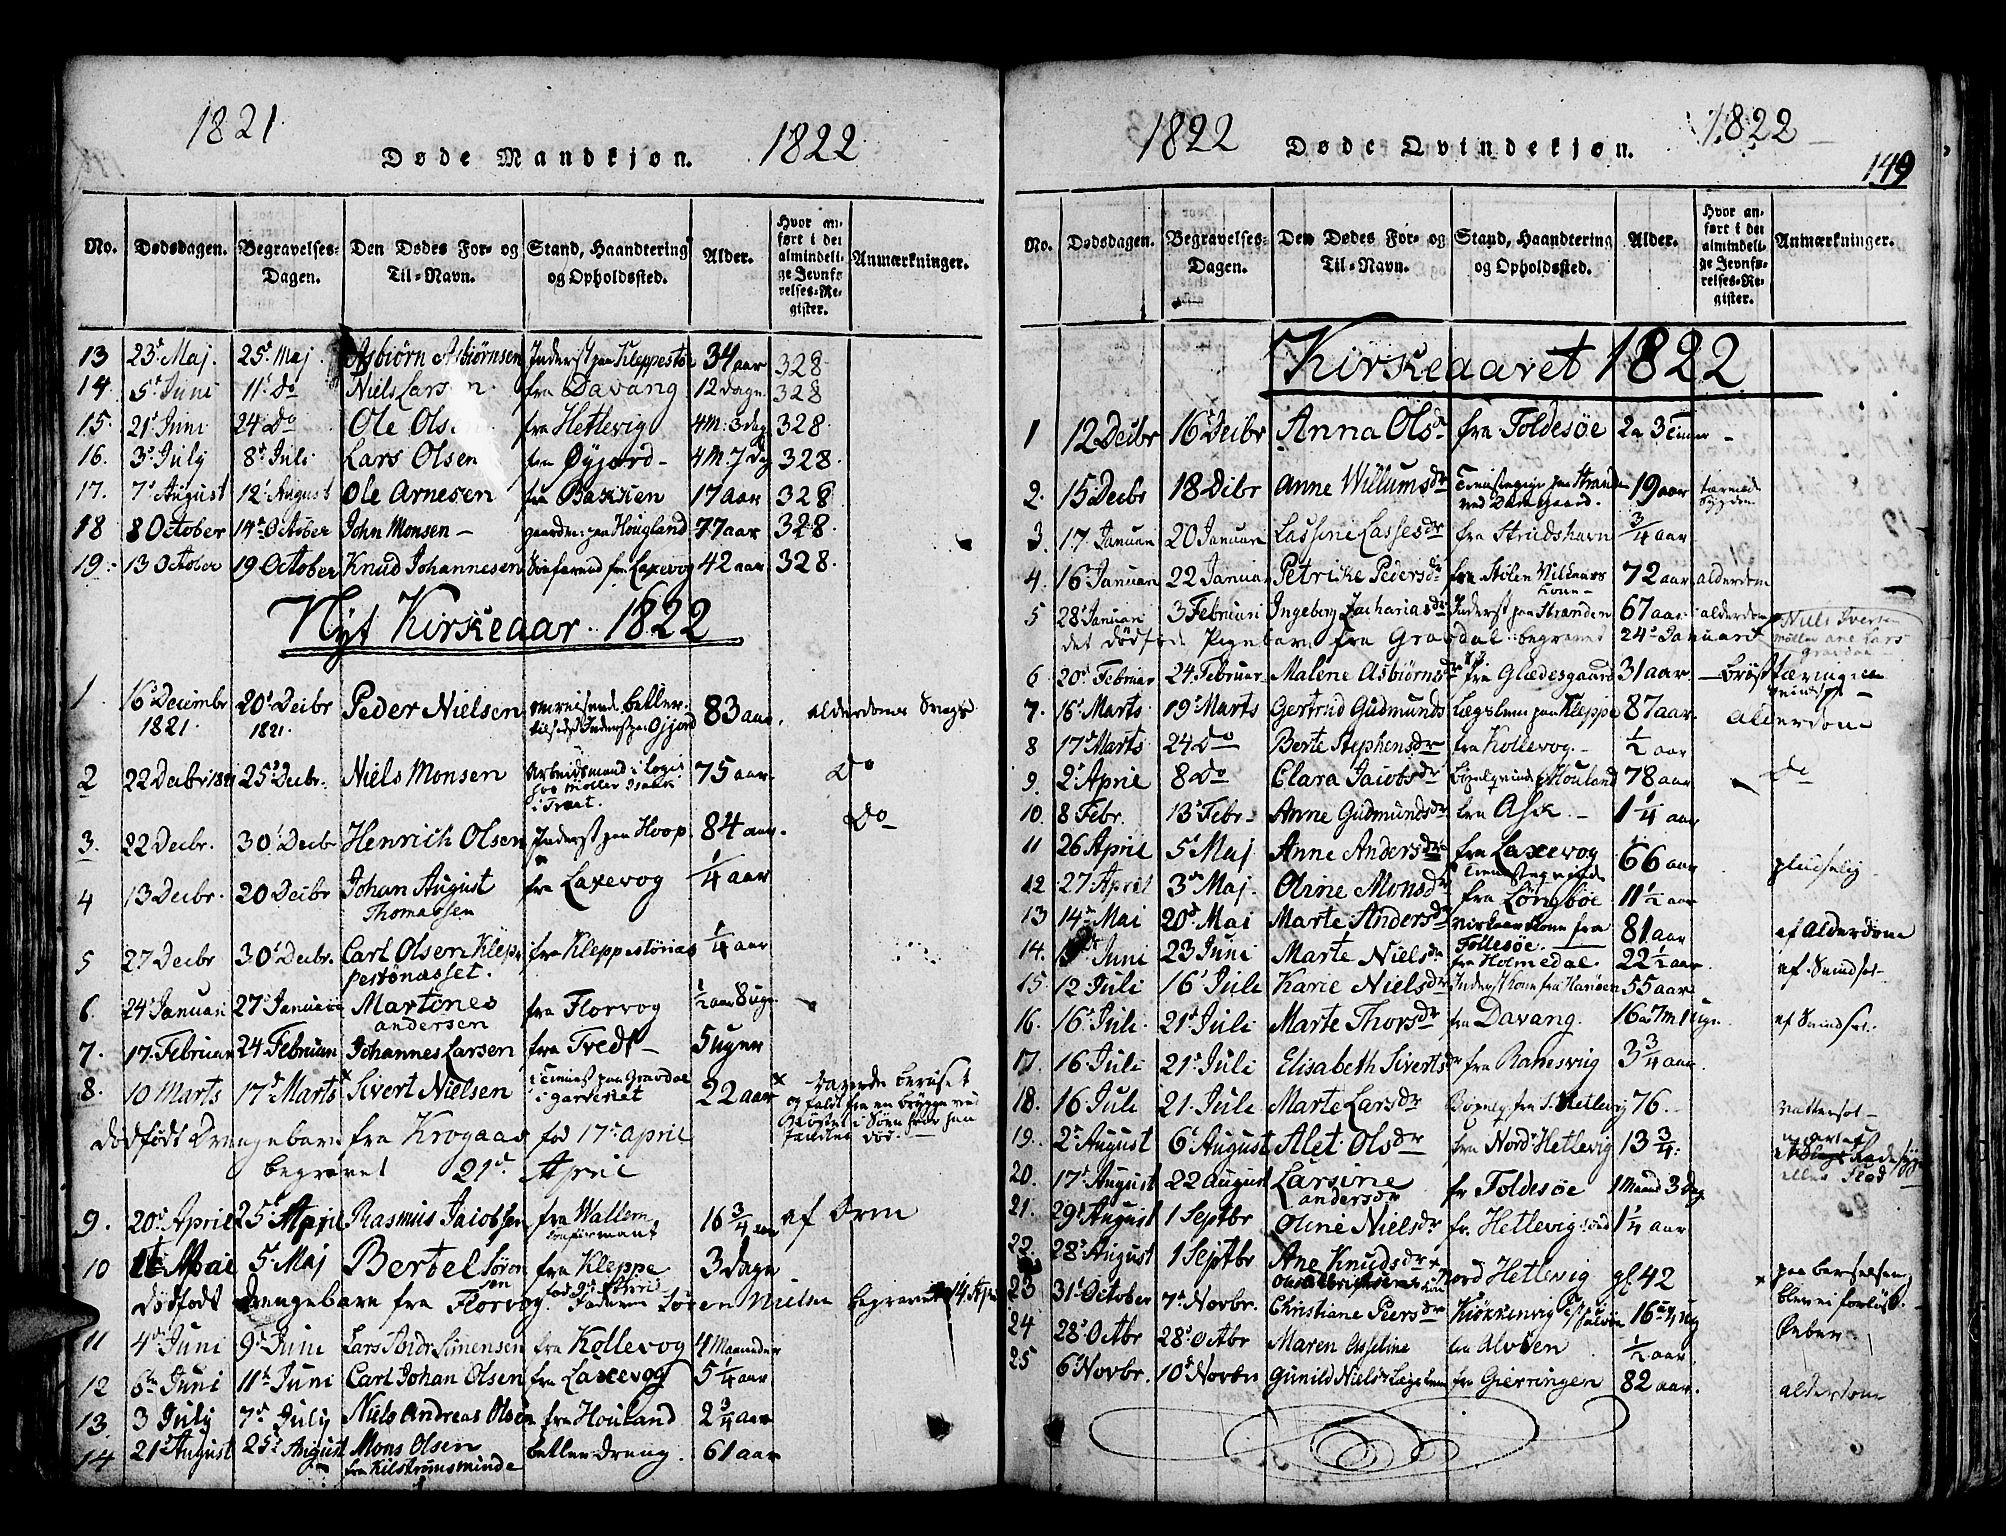 1821
Døde Mandkjøn.
1822
No.
Dødsdagen.
Begravelses-Dagen.
Den Dødes For- og Til-Navn.
Stand, Haandtering og Opholdssted.
Alder.
Hvor anført i det almindelige Jevnførelses-Register.
Anmærkninger.
13 23d Maj. 25d Maj Asbiørn Asbiørnsen Inderst paa Kleppestøe 34 aar 328
14. 5d Juni 11d Do Niels Larsen. fra Davang 12 dage 328
15. 21d Juni 24 Do Ole Olsen fra Hetlevig 4M: 3 dag 328.
16. 3d July 8d Juli Lars Olsen fra Øyjord 4M. 7 Dag 328.
17. 7d August 12d August Ole Arnesen fra Bakken 17 Aar 328
18 8 October 14d October John Monsen paa Hougland 77 aar 328.
19. 13 October 19 October Knud Johannesen fra Laxevog 42 aar 328.
Nyt Kirkeaar. 1822
1. 16d Decembr 1821. 20d Decbr 1821. Peder Nielsen 83 aar. alderdoms Svags
2 22 Decbr 1821 25d Decbr. Niels Monsen Arbeidsmand i Logie hos Møller i Træet. 75 aar. Do
3. 22 Decbr. 30d Decbr Henrich Olsen Inderst paa Hoop 84 aar. Do
4 13 Decbr. 20 Decbr Johan August Thomassen fra Laxevog 1/4 aar
5 27 Decbr 30d Decbr. Carl Olsen Kleppestönasset. fra Kleppestönas 1/4 aar
6. 24d Januari 27d Januari Martines andersen fra Florvog 1/2 aar 8 ugr
7. 17. Februari 24 Februari Johannes Larsen fra Tredt 5 uger
8. 10 Marts 17d Marts Sivert Nielsen i Tieniste paa Gravdal i garveriet 22 aar
dødfødt Drengebarn fra Krogaas fød 17d april
begravet 21d April
9. 20d April 25d April Rasmus Jacobsen fra Wallem confirmant 16 3/4 aar af Orm
10 Mai 5d Maj Bertel Søren sen fra Kleppe 3 dage
dødfødt Drengebarn fra Florvog. Søren Nielsen begravet 14 Apr
11 4d Juni 9d Juni Lars Simensen fra Kollevog 4 Maaneder
12 6d Juni 11d Juni Carl Johan Olsen fra Laxevog 5 1/4 aar
13 3 July 7d July Niels Andreas Olsen fra Houland 2 3/4 aar
14 21d August 25d August Mons Olsen fra Kilstrømsminde betler Dreng. 61 aar
1822
Døde Qvindekjøn.
1822
149
No.
Dødsdagen.
Begravelses-Dagen.
Den Dødes For- og Til-Navn.
Stand, Haandtering og Opholdssted.
Alder.
Hvor anført i det almindelige Jevnførelses-Register.
Anmærkninger.
Kirkeaaret 1822
1 12 Decbr 16d Decbr Anna Olsdr fra Foldesøe 2a 3
2. 15 Decbr 18 Decbr Anne Willumsdr Tienistepige paa Stranden ved Damsgaard. 19 aar
3. 17 Januari 20 Januari Lassine Lassesdr fra Strudshavn 3/4 aar
4. 16 Januari 22 Januari Petrike Pedersdr fra Stølen 72 aar alderdom
5 28d Januari 3 Februari Ingeborg Zachariasdr Inderst paa Stranden 67 aar alderdom
det dødfødte Pigebarn fra Gravdal begravet 24d Januari Niels Iversen Møller Gravdal
6. 20d Februar 24. Februar Malene Asbiørnsdr fra Glædesgaard 31 aar
7. 16d Marts 19d Marts Gertrud Gudmunds Lægslem paa Kleppe 87 aar. Alderdom
8 17d Marts 24 Do Berte Stephensdr fra Kollevog 1/2 aar
9. 2d April 8 Do Clara Jacobsdr Houland 78 aar Do
10. 8 Febr. 13d Febr. Anne Gudmundsdr fra Ask 1 1/4 aar
11 26 April 5d Maj Anne Andersdr fra Laxevog 66 aar pludselig
12 27 April 3d Maj. Oline Monsdr fra Løngböe 11 1/2 aar
13 14d Mai 20d Mai Marte Andersdr fra Follesøe. 81 aar af Alderdom
14. Juni 23 Juni Marte Nielsdr fra Holmedal. 22 1/2 aar af Svindsot
15. 12 Juli 16d Juli Karie Nielsdr 55 aar
16. 16d Juli 21d Juli Marte Thorsdr fra Davang. 16a 7m 1 ugr. af Svindsot.
17. 16 Juli 21d Juli Elisabeth Sivertsdr 3 3/4 aar
18. 16 Juli 21. Juli Marte Larsdr S. Hetlevig 76 Vattersot
19. 2d August 6d August Alet Olsdr fra Nord Hetlevig 13 3/4
20. 17d August 22 August Larsine andersdr fr Foldesøe 1 Maaned 3 Dag
21. 29d August 1 Septbr Oline Nielsdr fr. Hetlevig 1 1/4 aar
22. 28d August 1 Septbr Ane Knudsdr Nord Hetlevig gl. 42
23 31d October 7d Novbr. Christiane Piersdr Kiøkkenvig
24 28d Octbr 28d Octbr Maren Asseline fra Alvöen 1/2 aar. Feber
25 6d Novbr. 10d Novbr Gunild Nielsdr Lægslem fra Gierringen 82 aar. alderdom